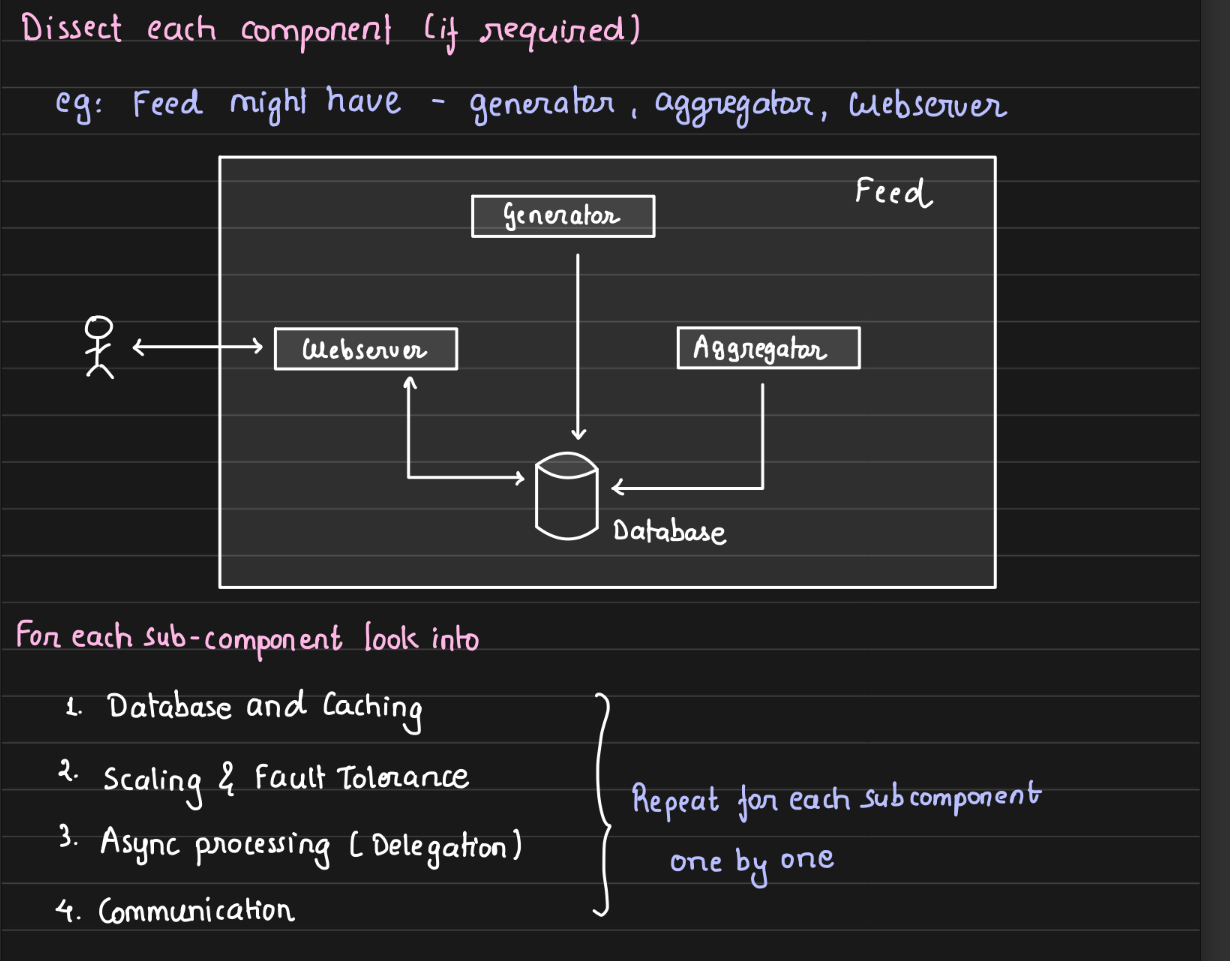 Dissect each component (if required)
eg: Feed might have - generator, aggregator, Webserver
Feed
Generator
Webserver
Aggregator
Database
For each sub-component look into
1. Database and Caching
2. Scaling & Fault Tolerance
3. Async processing (Delegation)
4. Communication
Repeat for each subcomponent
one by one